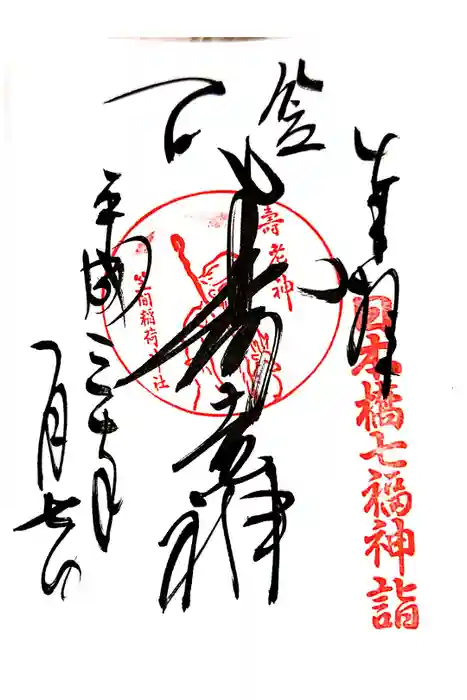 奉拝
日本橋七福神詣
笠间
寿老神
壽老神
笠間稲荷神社
平成三十年
一月七日